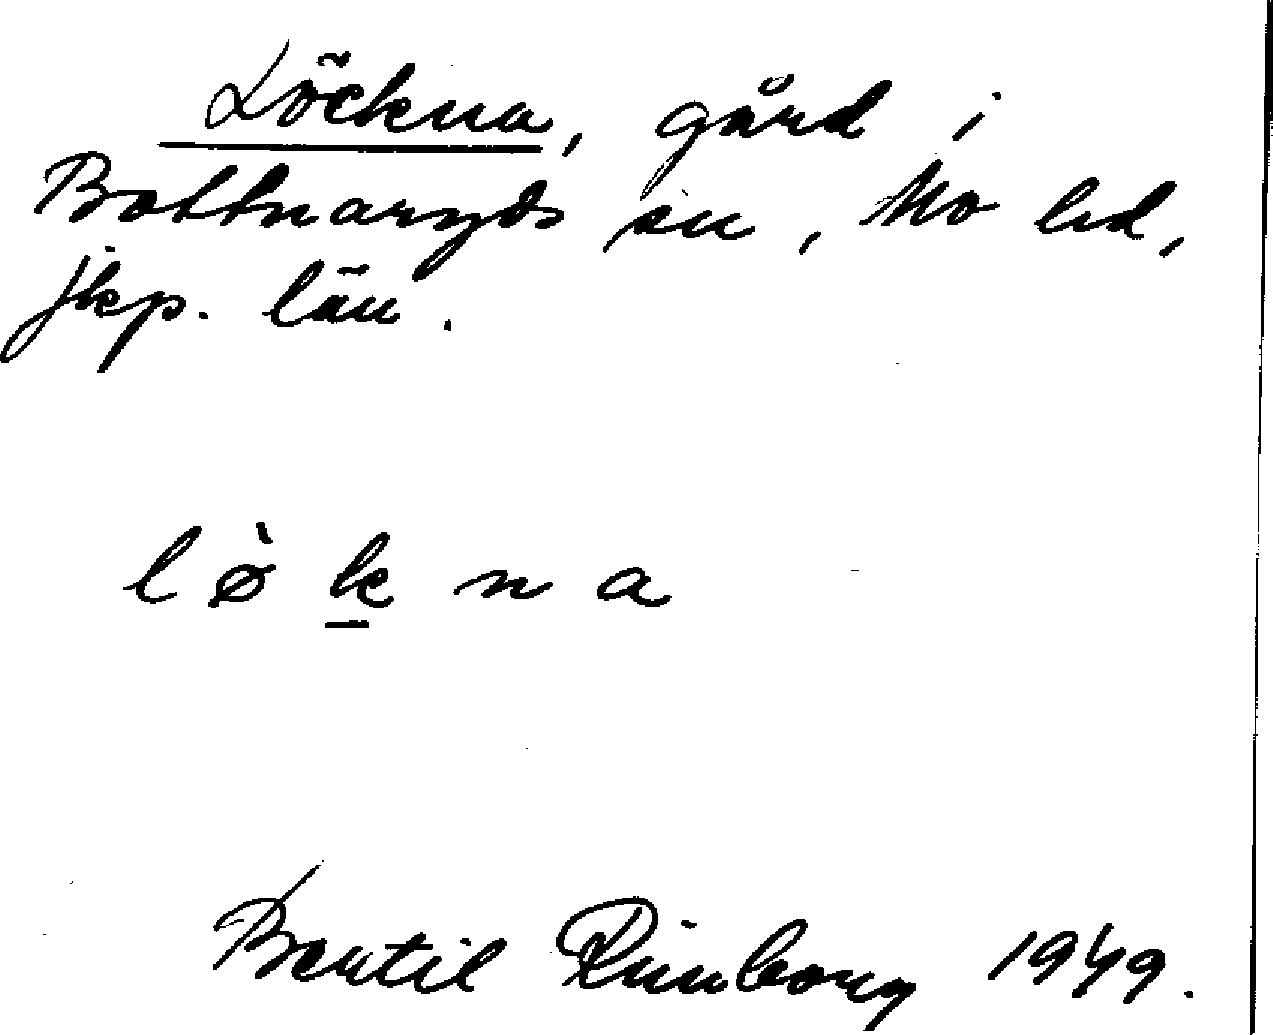 Löckna, gård i
Bottnaryds sn, Mo hd,
Jkp. län.
l ø̀ k̲ n a
Bertil Rimborg 1949.